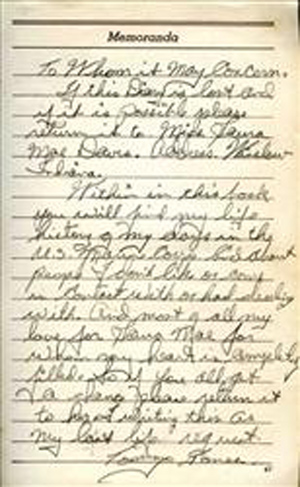 Memoranda
To Whom it May Concern.
If this Diary is lost and
if it is possible please
return it to Miss Laura
Mae Davis. Address Winslow
Indiana.
Within in this book
you will find my life
history of my days in the
U.S. Marine Corps. And about
people I don't like or come
in contact with or had dealing
with. And most of all my
love for Laura Mae for
whom my heart is completely
filled. So if you all get
a chance please return it
to her. I writing this as
my last life request